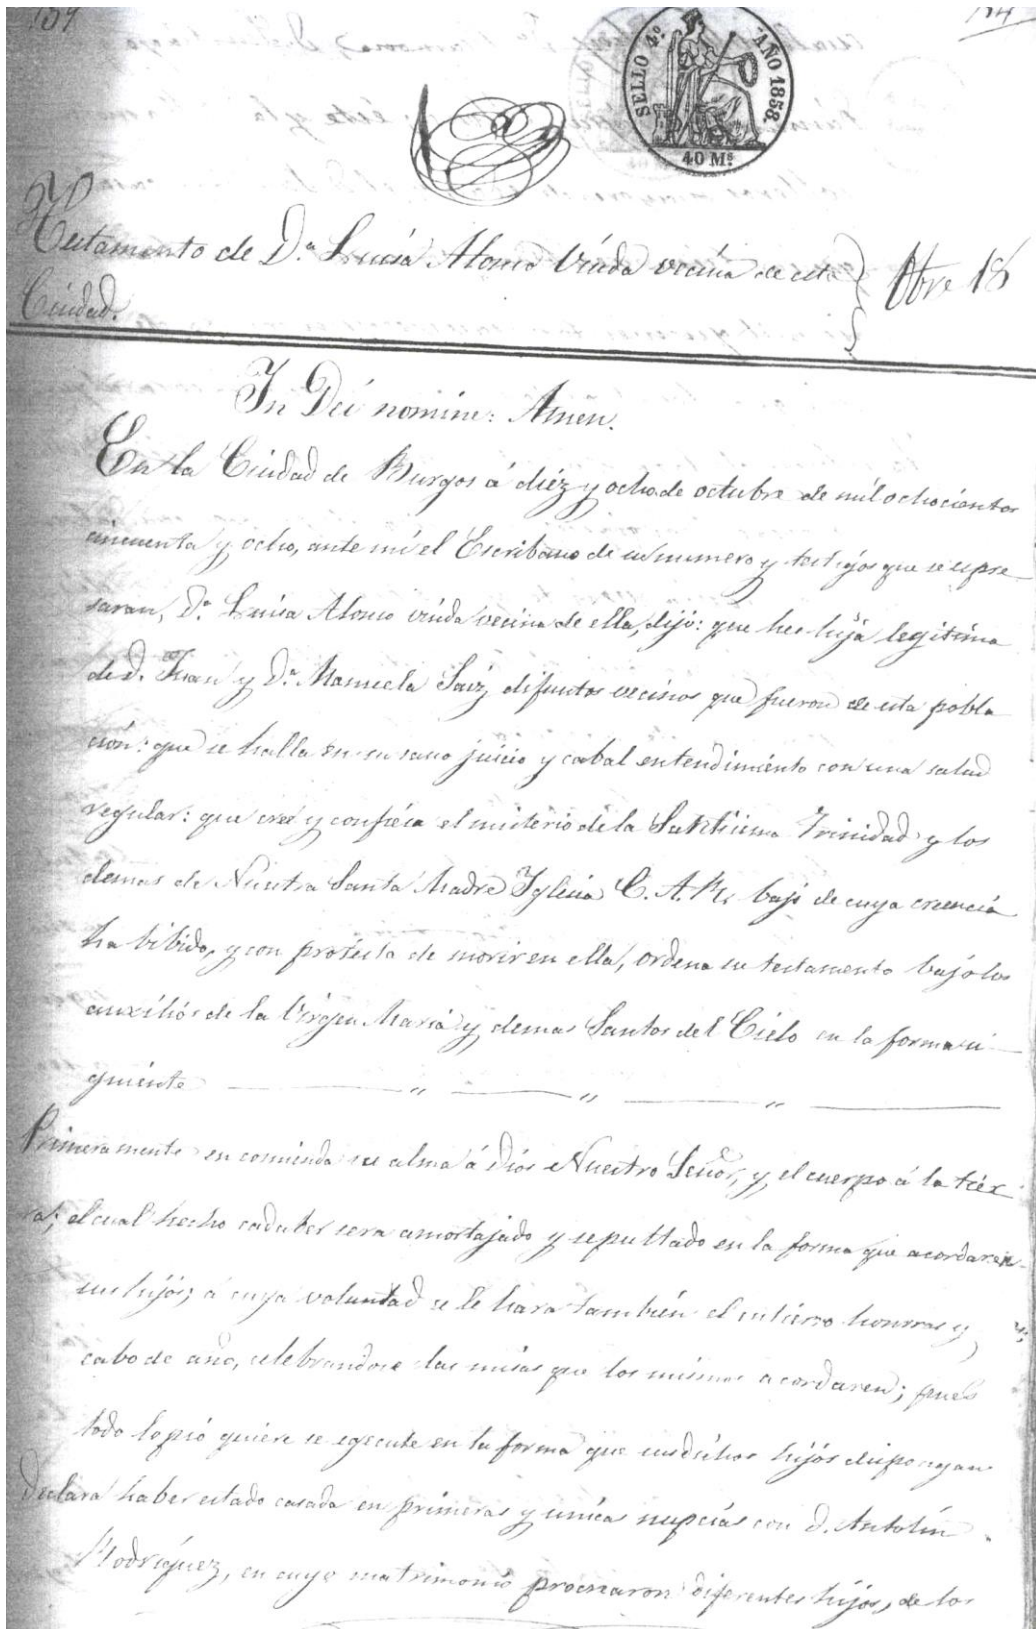 154
SELLO 4º. AÑO 1858.
40 Mˢ.
Testamento de Dª Luisa Alonso Viuda vecina de esta
Ciudad.
Otbre 18
In Dei nomine: Amen.
En la Ciudad de Burgos á diéz y ocho de octubre de mil ochocientos
cincuenta y ocho, ante mi el Escribano de su numero y testigos que se espre
saran, Dª Luisa Alonso viuda vecina de ella, dijo: que hes hija legitima
de D. Juan y Dª Manuela Saiz difuntos vecinos que fueron de esta pobla
ción: que se halla en su sano juicio y cabal entendimiento con una salud
regular: que cree y confiesa el misterio de la Santisima Trinidad y los
demas de Nuestra Santa Madre Iglesia C. A. R. bajo de cuya creencia
ha bibido, y con protesta de morir en ella, ordena su testamento bajo los
auxilios de la Virgen Maria y demas Santos del Cielo en la forma si
guiente
Primeramente encomienda su alma á Dios Nuestro Señor, y el cuerpo á la tier
ra; el cual hecho cadaber sera amortajado y sepultado en la forma que acordaren
sus hijos; á cuya voluntad se le hara tambien el entierro honrras y
cabo de año, celebrandose las misas que los mismos acordaren; pues
todo lo pio quiere se egecute en la forma que sus dichos hijos dispongan
Declara haber estado casada en primeras y unicas nupcias con D. Antolin
Rodriguez, en cuyo matrimonio procrearon diferentes hijos, de los